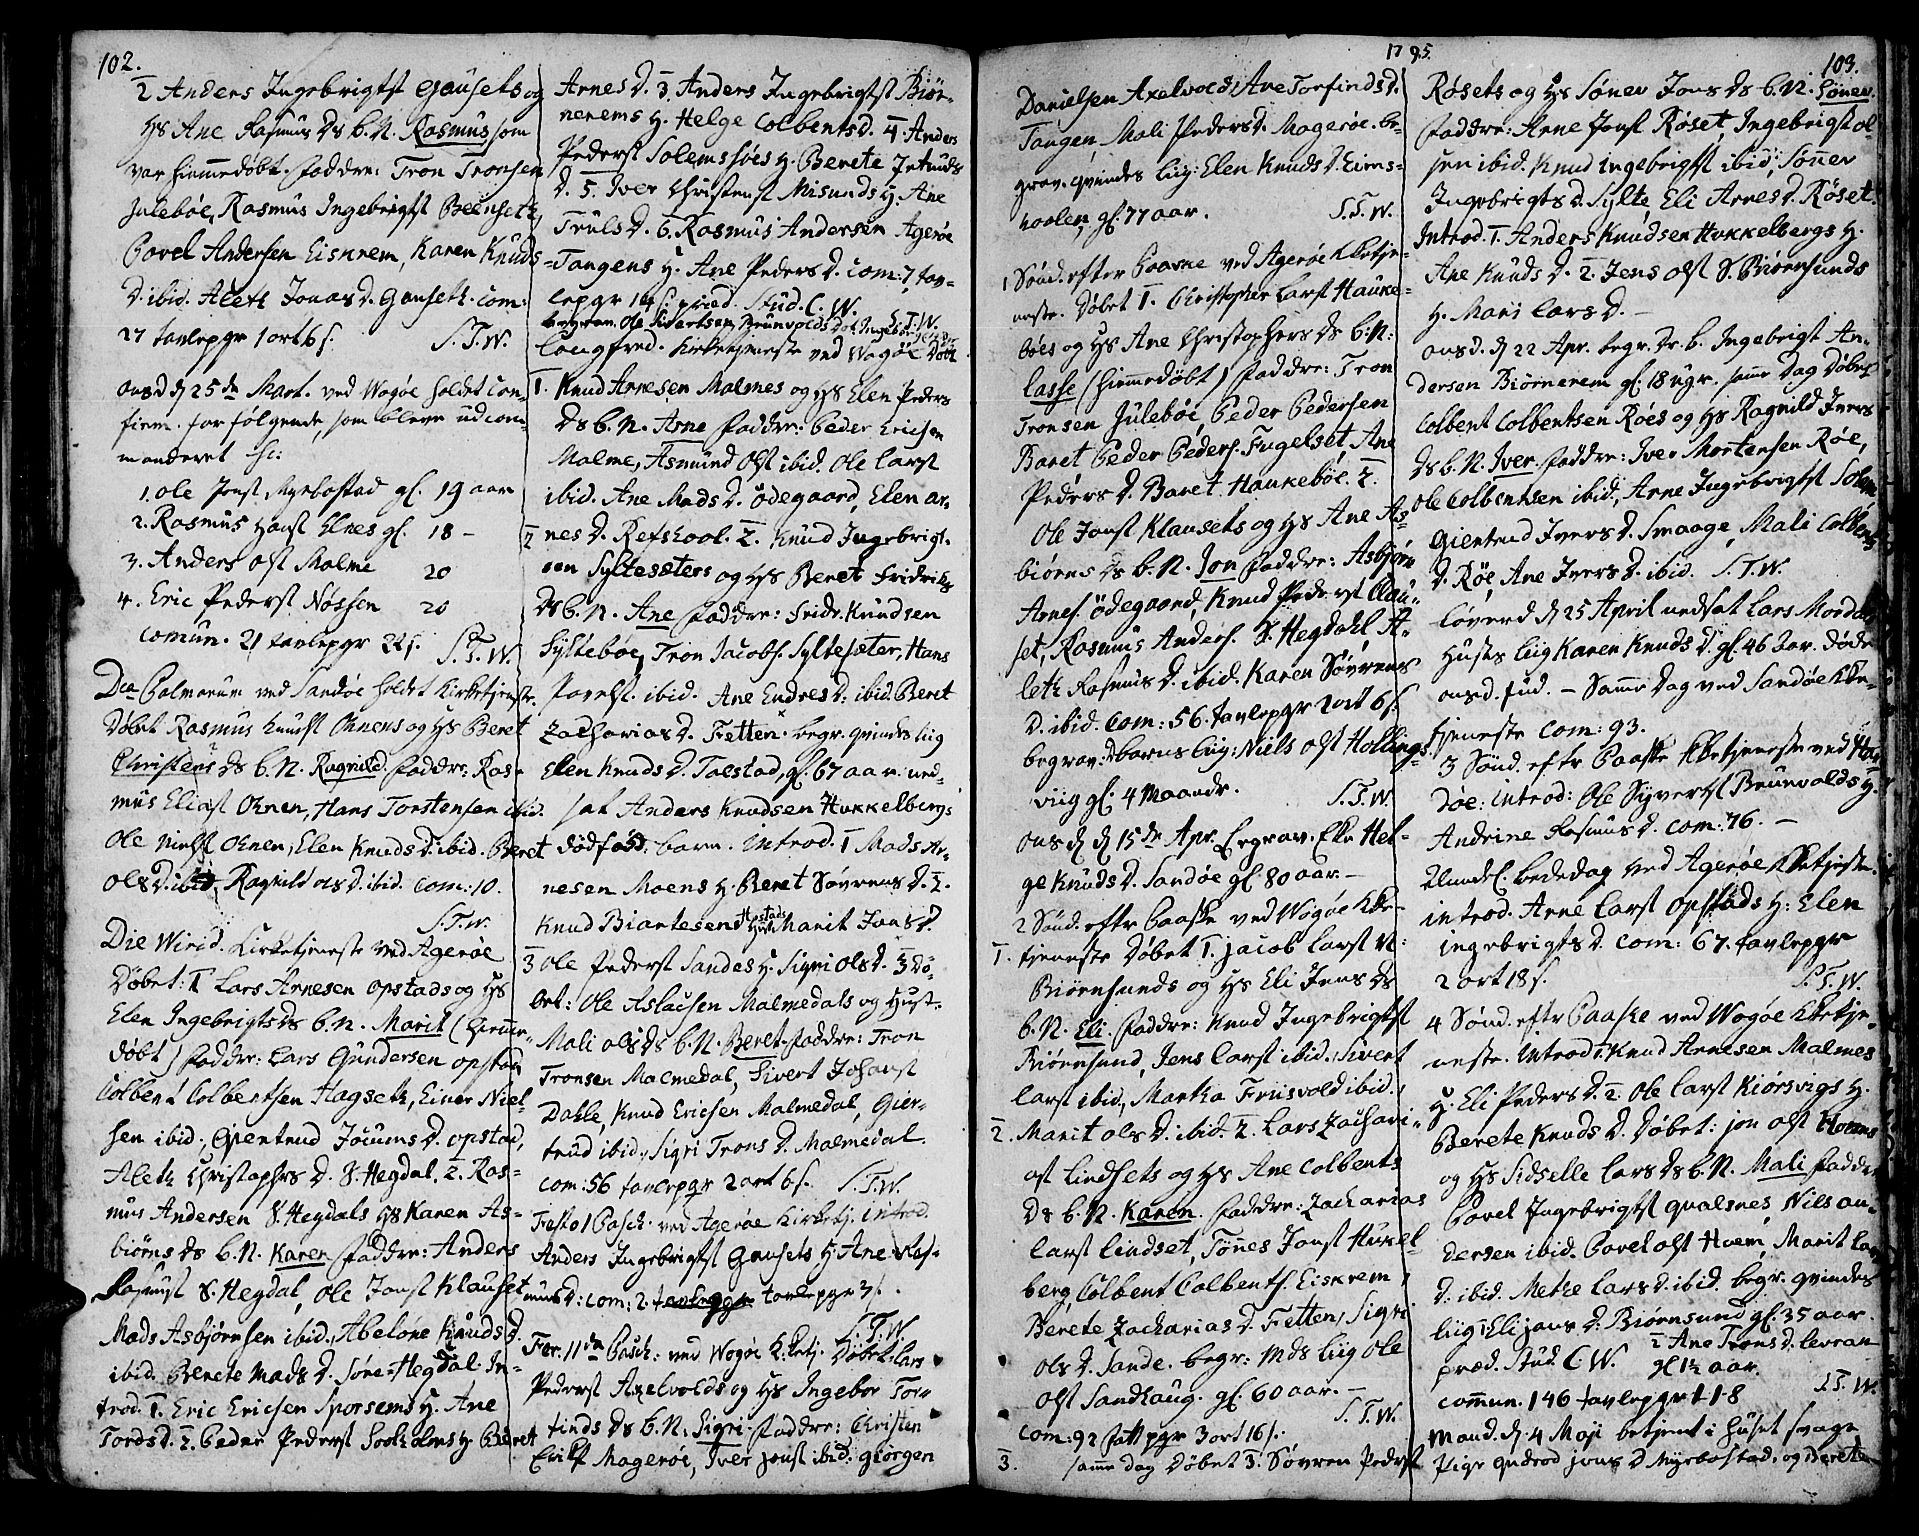 102.
2 Anders Ingebrigtst Gausets og
Hs Ane Rasmus Ds b. N. Rasmus som
var hiemmedøbt. Faddre: Tron Tronsen
Julebøe, Rasmus Ingebrigtst Beensetz,
Povel Andersen Eiskrem, Karen Knuds
D. ibid. Aleth Jonas D. Gausetz. Com:
27 tavlepgr 1 ort 6 s. S.T.W.
onsd d 25de Mart. ved Wogøe holdet Con-
firm. for følgende, som bleve udcom-
manderet
1. Ole Jonst. Myrbostad gl. 19 aar
2. Rasmus Hanst Elnes gl. 18 -
3. Anders olst Malme 20
4. Eric Pederst Nøssen 20
Comun. 21 tavlepgr 22 s. S.T.W.
Dca Palmarum ved Sandøe holdet Kirketjenste.
Døbet Rasmus Knudst Ohnens og Hs Beret
Christens Ds b. N. Ragnild. Faddre. Ras-
mus Eliast Ohnen, Hans Torstensen ibid.
Ole Nielst Ohnen, Elen Knuds D. ibid. Beret
ols D. ibid, Ragnild ols D. ibid. Com: 10.
S.T.W.
Die Wirid. Kirketjeneste ved Agerøe
Døbet: 1 Lars Arnesen Opstads og Hs
Elen Ingebrigts Ds b. N. Marit (hiemme-
døbt) Faddre: Lars Gundersen opstad
Colbent Colbentsen Hagsetz, Einer Niel-
sen ibid., Giertrud Joeums D. opstad,
Aleth Christophrs D. S. Hegdal. 2. Ras-
mus Andersen S. Hegdals Hs Karen As-
biørns Ds b. N. Karen Faddre: Anders
Rasmust S. Hegdal, Ole Jonst Klauset
Mads Asbjørnsen ibid., Abelone Knuds D.
ibid. Berete Mads D. Søre-Hegdal. In-
trod. 1. Eric Ericsen Sporsems H. Ane
Tords D. 2. Peder Pederst Sootholms H. Beret
Arnes D. 3. Anders Ingebrigtst Biør-
nerems H. Helge Colbents D. 4. Anders
Pederst Solemsøes H. Berete Joetuds
D. 5. Iver Christenst Misunds H. Ane
Truls D. 6. Rasmus Andersen Agerøe
Tangens H. Ane Peders D. Com: 7, tav-
lepgr 14 s. præd. Stud. C. W. S.T.W.
begrav. Ole Sivertsen Brunvolds
Langfred. Kirketjeneste ved Wogøe Døbt
1. Knud Arnesen Malmes og Hs Elen Peders
Ds b. N. Arne Faddre: Peder Ericsen
Malme, Asmund Olst ibid. Ole Larst
ibid. Ane Mads D. Ødegaard, Elen ar-
nes D. Refshool. 2. Knud Ingebrigt-
sen Syltesæters og Hs Beret Fridrichs
Ds b. N. Ane Faddre: Fridr. Knudsen
Syltebøe, Tron Jacobs. Syltesæter, Hans
Povelst. ibid. Ane Endres D. ibid. Beret
Zacharias D. Fetten. begr. qvindes liig
Elen Knuds D. Taestad, gl. 67 aar. ned-
sat Anders Knudsen Hukkelbergs
dødfød. barn. Introd. 1 Mads Ar-
nesen Moens H. Beret Søvrens D. 2.
Knud Biartesen Opstads Hust. Marit Joas D.
3 Ole Pederst Sandes H. Sigri Ols D. 3 Dø-
bet: Ole Aslachsen Malmedals og Hust.
Mali ols Ds b. N. Beret Faddre: Tron
Tronsen Malmedal, Sivert Johanst
Dahle, Knud Ericsen Malmedal, Gier-
trud ibid., Sigri Trons D. Malmedal.
Com: 56 tavlepgr 2 ort 6 s. S.T.W.
Festo 1 Pasch. ved Agerøe Kirketj. introd.
Anders Ingebrigtst Gausets H. Ane Ras-
mus D: Com: 2. tavlepgr 3 s.
S.T.W
Fer. 11da Pasch: ved Wogøe K.tj. Døbet: Lars
Pederst Axelvolds og Hs Ingebor Tor-
finds Ds b. N. Sigri. Faddre: Christen
Magerøe, Iver Jonst ibid: Giørgen
1795.
103.
Danielsen Axelvold, Ane Torfinds D.
Tangen, Mali Peders D. Magerøe. be-
grav. qvindes liig: Elen Knuds D. Eirns-
hoolen, gl. 77 aar. S.T.W.
1 Sønd. efter Paaske ved Agerøe Kketje-
neste. Døbet 1. Christopher Larst Hauke-
bøes og Hs Ane Christophers Ds b. N:
Lasse (hiemmedøbt) Faddre: Tron
Tronsen Julebøe, Peder Pedersen
Baret Peder Peders. Fugelset, Ane
Peders D. Baret, Haukebøe. 2.
Ole Jonst Klausets og Hs Ane As-
biørns Ds b. N. Jon Faddre: Asbjørn
Arnes. Ødegaard, Knud Pederst Clau-
set, Rasmus Anders. S. Hegdahl, A-
letz Rasmus D. ibid. Karen Søvrens
D. ibid. Com: 56. tavlepgr 2 ort 6 s.
begrav: barns liig: Niels olst Hollings-
viig gl. 4 Maandr. S.T.W
ons d d 15de Apr. begrav. Elke Hel-
ge Knuds D. Sandøe gl. 80 aar. -
2 Sønd. eftr Paaske ved Wogøe Kke-
1. tjeneste Døbet 1. Jacob Larst N:
Biørnsunds og Hs Eli Jens Ds
b. N. Eli. Faddre: Knud Ingebrigtst
Biørnsund, Jens Larst ibid., Sivert
Larst ibid., Martha Friisvold ibid.,
2. Marit ols D. ibid. 2. Lars Zachari-
ast Lindsets og Hs Ane Colbents
Ds b. N. Karen. Faddre: Zacharias
Larst Lindset, Tønes Jonst Hukel-
berg, Colbent Colbents. Eiskrem,
Berete Zacharias D. Fetten, Sigri
ols D. Sande. begr: Mds liig Ole
Olst Sandhaug. gl. 60 aar. -
Com: 92 tavlpgr 3 ort 16 s. S.T.W.
3. samme dag Døbet 3. Søvren Pederst
Røsets og Hs Søner Jons Ds b. N. Søner.
Faddre: Arne Jonst Røset, Ingebrigt ol-
sen ibid. Knud Ingebrigtst ibid, Sønner
Ingebrigts D. Sylte, Eli Arnes D. Røset.
Introd. 1. Anders Knudsen Hukkelbergs H.
Ane Knuds D. 2. Jens olst S. Biørnsunds
H. Mari Lars D. -
onsd. d 22 Apr. begr. Dr. b. Ingebrigt An-
dersen Biørnerem gl: 18 ugr. samme Dag Døbet
Colbent Colbentsen Røes og Hs Ragnild Ivers
Ds b. N. Iver. Faddre: Iver Mortensen Røe,
Ole Colbentsen ibid., Arne Ingebrigtst Solem
Giertrud Ivers D. Smaage, Mali Colbents
D. Røe, Ane Ivers D. ibid. S.T.W
Løverd d 25 April nedsat Lars Mordals
Husts liig Karen Knuds D. gl. 46 aar. døde
onsd. Jud. - Samme dag ved Sandøe Kke-
tjeneste Com: 93.
3 Sønd. eftr Paaske Kketjeneste ved
døe: introd: Ole Syverst Brunvolds H.
Andrine Rasmus D. Com: 76. -
Almindel. bededag ved Agerøe Kketjeste.
introd. Arne Larst Opstads H: Elen
ingebrigts D. Com: 67. tavlepgr
2 ort 18 s. S.T.W.
4 Sønd. eftr Paaske ved Wogøe Kketje-
neste. Introd 1. Knud Arnesen Malmes
H. Eli Peders D. 2. Ole Larst Kiørsvigs H.
Berete Knuds D. Døbet: Jon olst Hoems
og Hs Sidselle Lars Ds b. N. Mali Faddre
Povel Ingebrigtst Qualsnes, Niels an-
dersen ibid. Povel olst Hoem, Marit Lars
D. ibid. Methe Lars D. ibid. begr. qvindes
liig: Eli Jans D. Biørnsund gl. 35 aar.
2 Ane Trons D. Levran
præd. Stud. C W. gl 1½ aar.
commun. 146 tavlepgr 118 S.T.W.
Mand. d. 4 Maji betjent i Huset svage
Pige Gudrod Jons D Myrbostad, og Berete